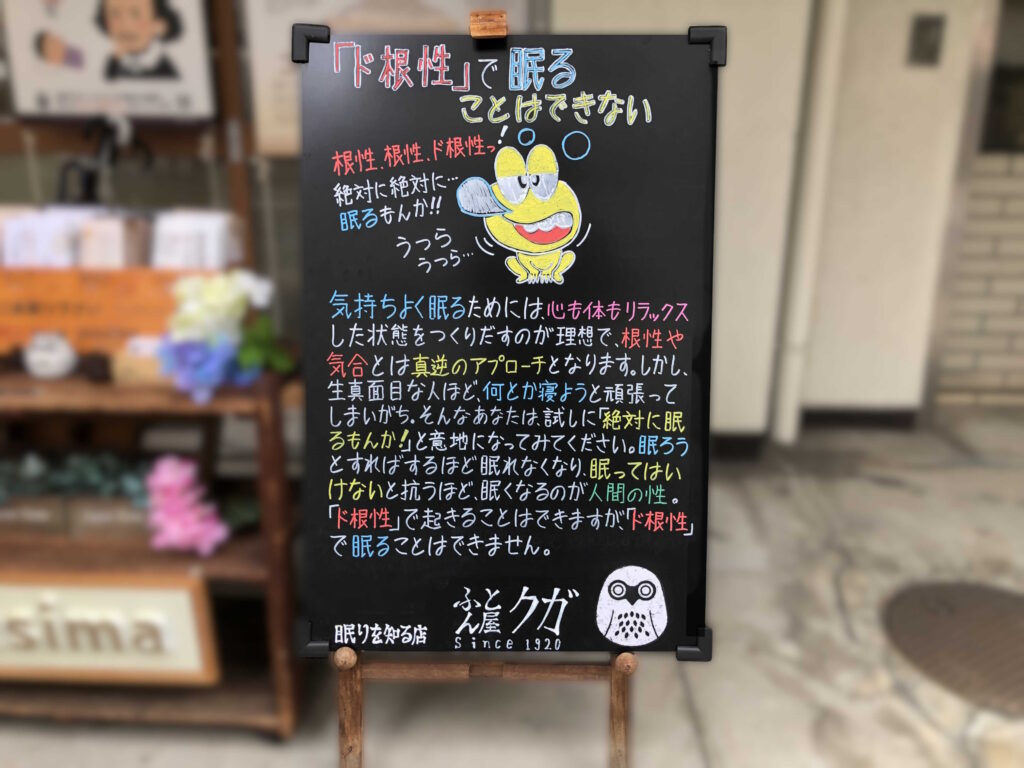 「ド根性」で眠る
ことはできない
根性、根性、ド根性っ!
絶対に絶対に…
眠るもんか!!
うっら
うつら…
気持ちよく眠るためには心も体もリラックス
した状態をつくりだすのが理想で、根性や
気合とは真逆のアプローチとなります。しかし、
生真面目な人ほど、何とか寝ようと頑張って
しまいがち。そんなあなたは、試しに「絶対に眠
るもんか!」と意地になってみてください。眠ろう
とすればするほど眠れなくなり、眠ってはい
けないと抗うほど、眠くなるのが人間の性。
「ド根性」で起きることはできますが「ド根性」
で眠ることはできません。
眠りを知る店
ふとん屋 クガ
Since 1920
sima